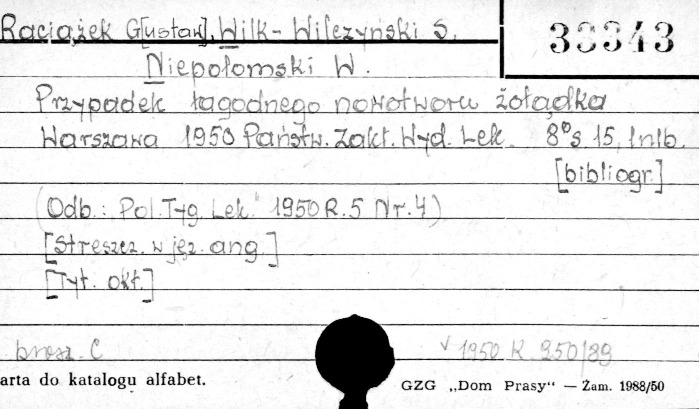 Raciążek G[ustaw], Wilk-Wilczyński S.
33343
Niepołomski W.
Przypadek łagodnego nowotworu żołądka
Warszawa 1950 Państw. Zakł. Wyd. Lek. 8° s 15, 1nlb.
[bibliogr.]
(Odb.: „Pol. Tyg. Lek." 1950 R. 5 Nr. 4)
[Streszcz. w jęz. ang.]
[Tyt. okł.]
brosz. C
1950 K 950/89
arta do katalogu alfabet.
GZG „Dom Prasy" — Zam. 1988/50